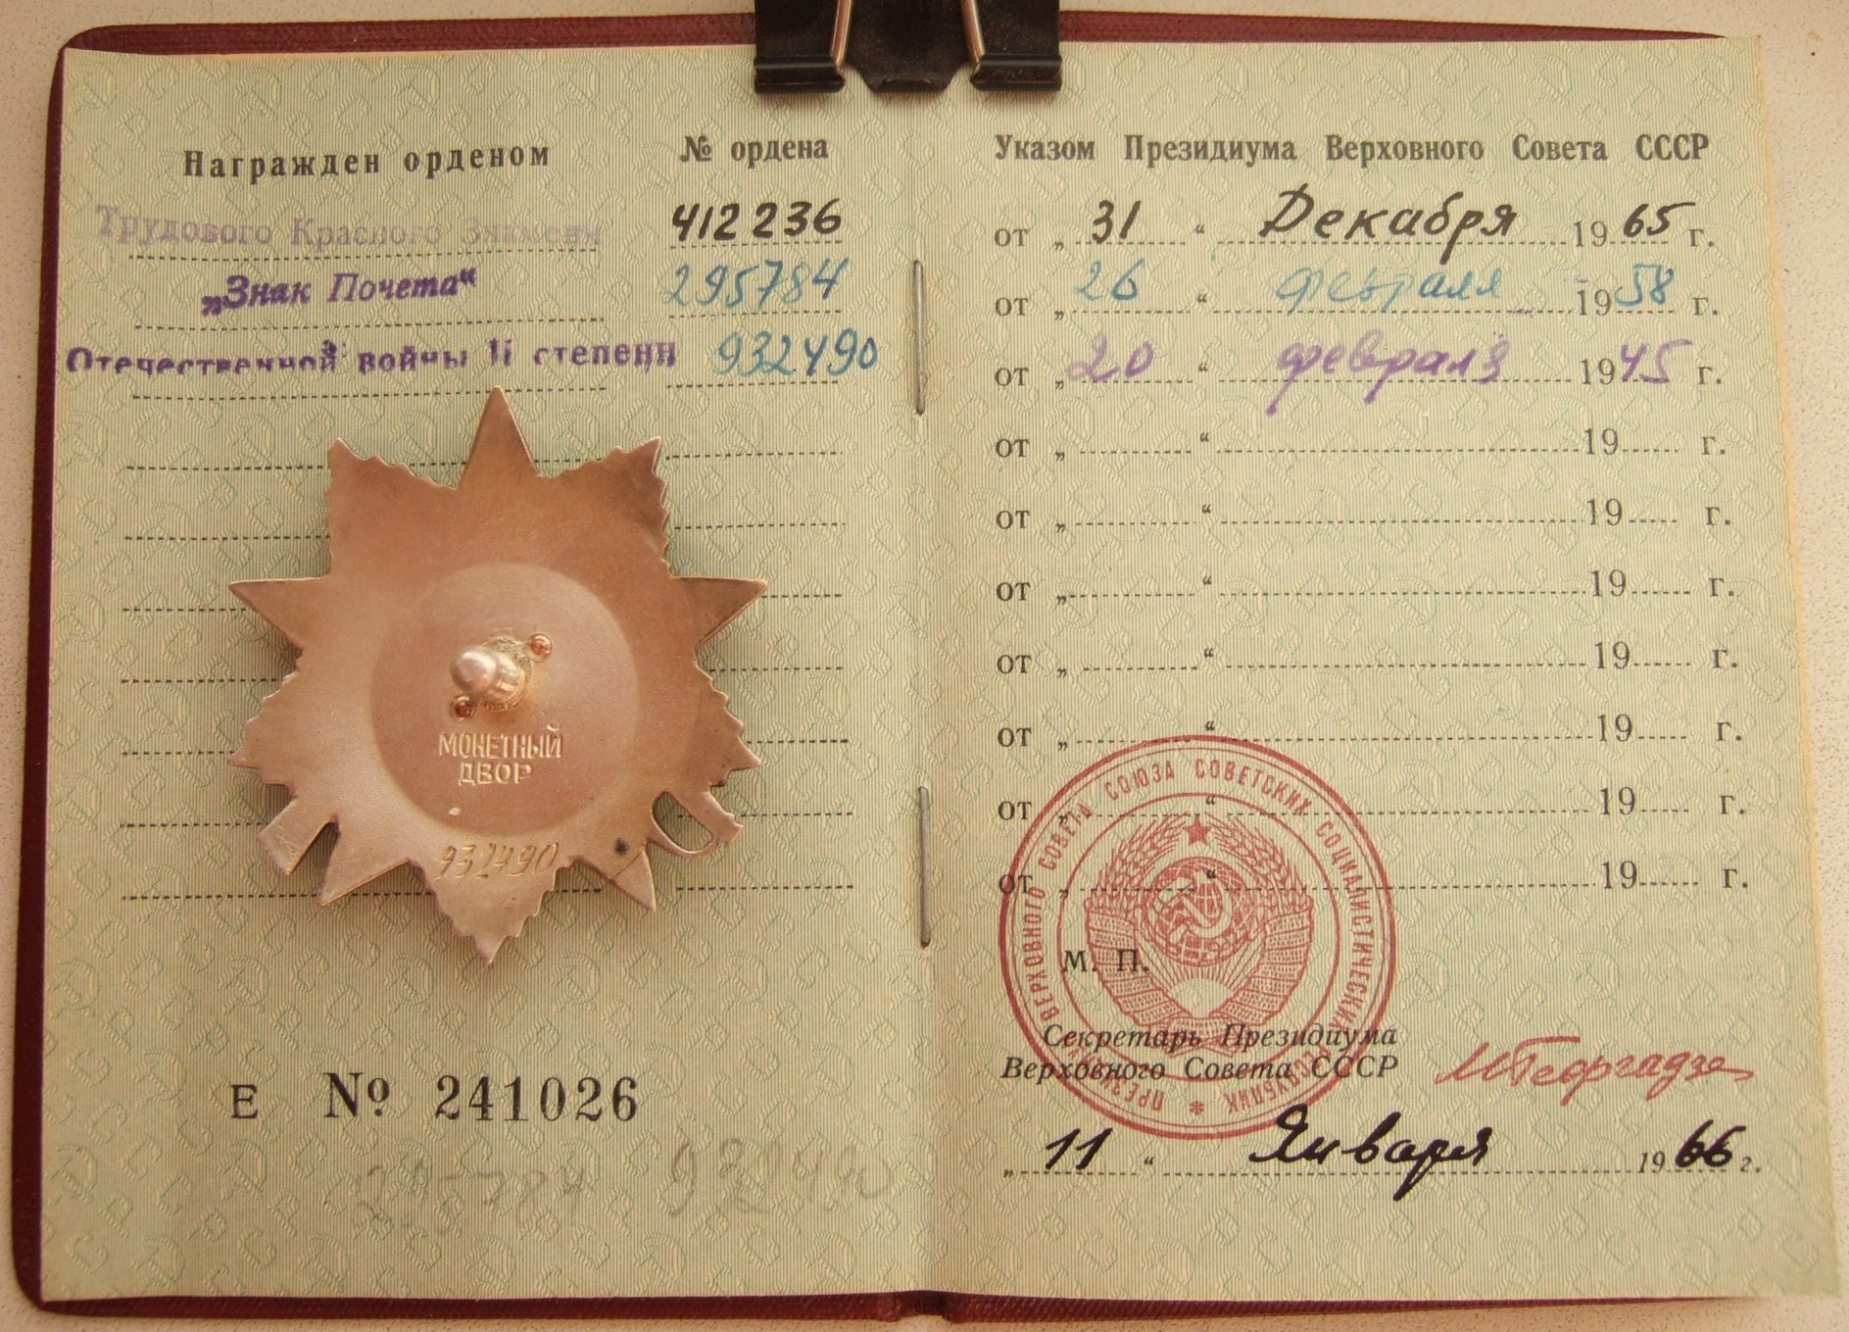 Награжден орденом № ордена
Трудового Красного Знамени 412236
„Знак Почета“ 295784
Отечественной войны II степени 932490
МОНЕТНЫЙ
ДВОР
932490
Е № 241026
295784 932490
Указом Президиума Верховного Совета СССР
от „31“ Декабря 1965 г.
от „26“ февраля 1958 г.
от „20“ февраля 1945 г.
от „ “ 19 г.
от „ “ 19 г.
от „ “ 19 г.
от „ “ 19 г.
от „ “ 19 г.
от „ “ 19 г.
от „ “ 19 г.
ПРЕЗИДИУМ ВЕРХОВНОГО СОВЕТА СОЮЗА СОВЕТСКИХ СОЦИАЛИСТИЧЕСКИХ РЕСПУБЛИК *
М. П.
Секретарь Президиума
Верховного Совета СССР МГеоргадзе
„11“ Января 1966 г.